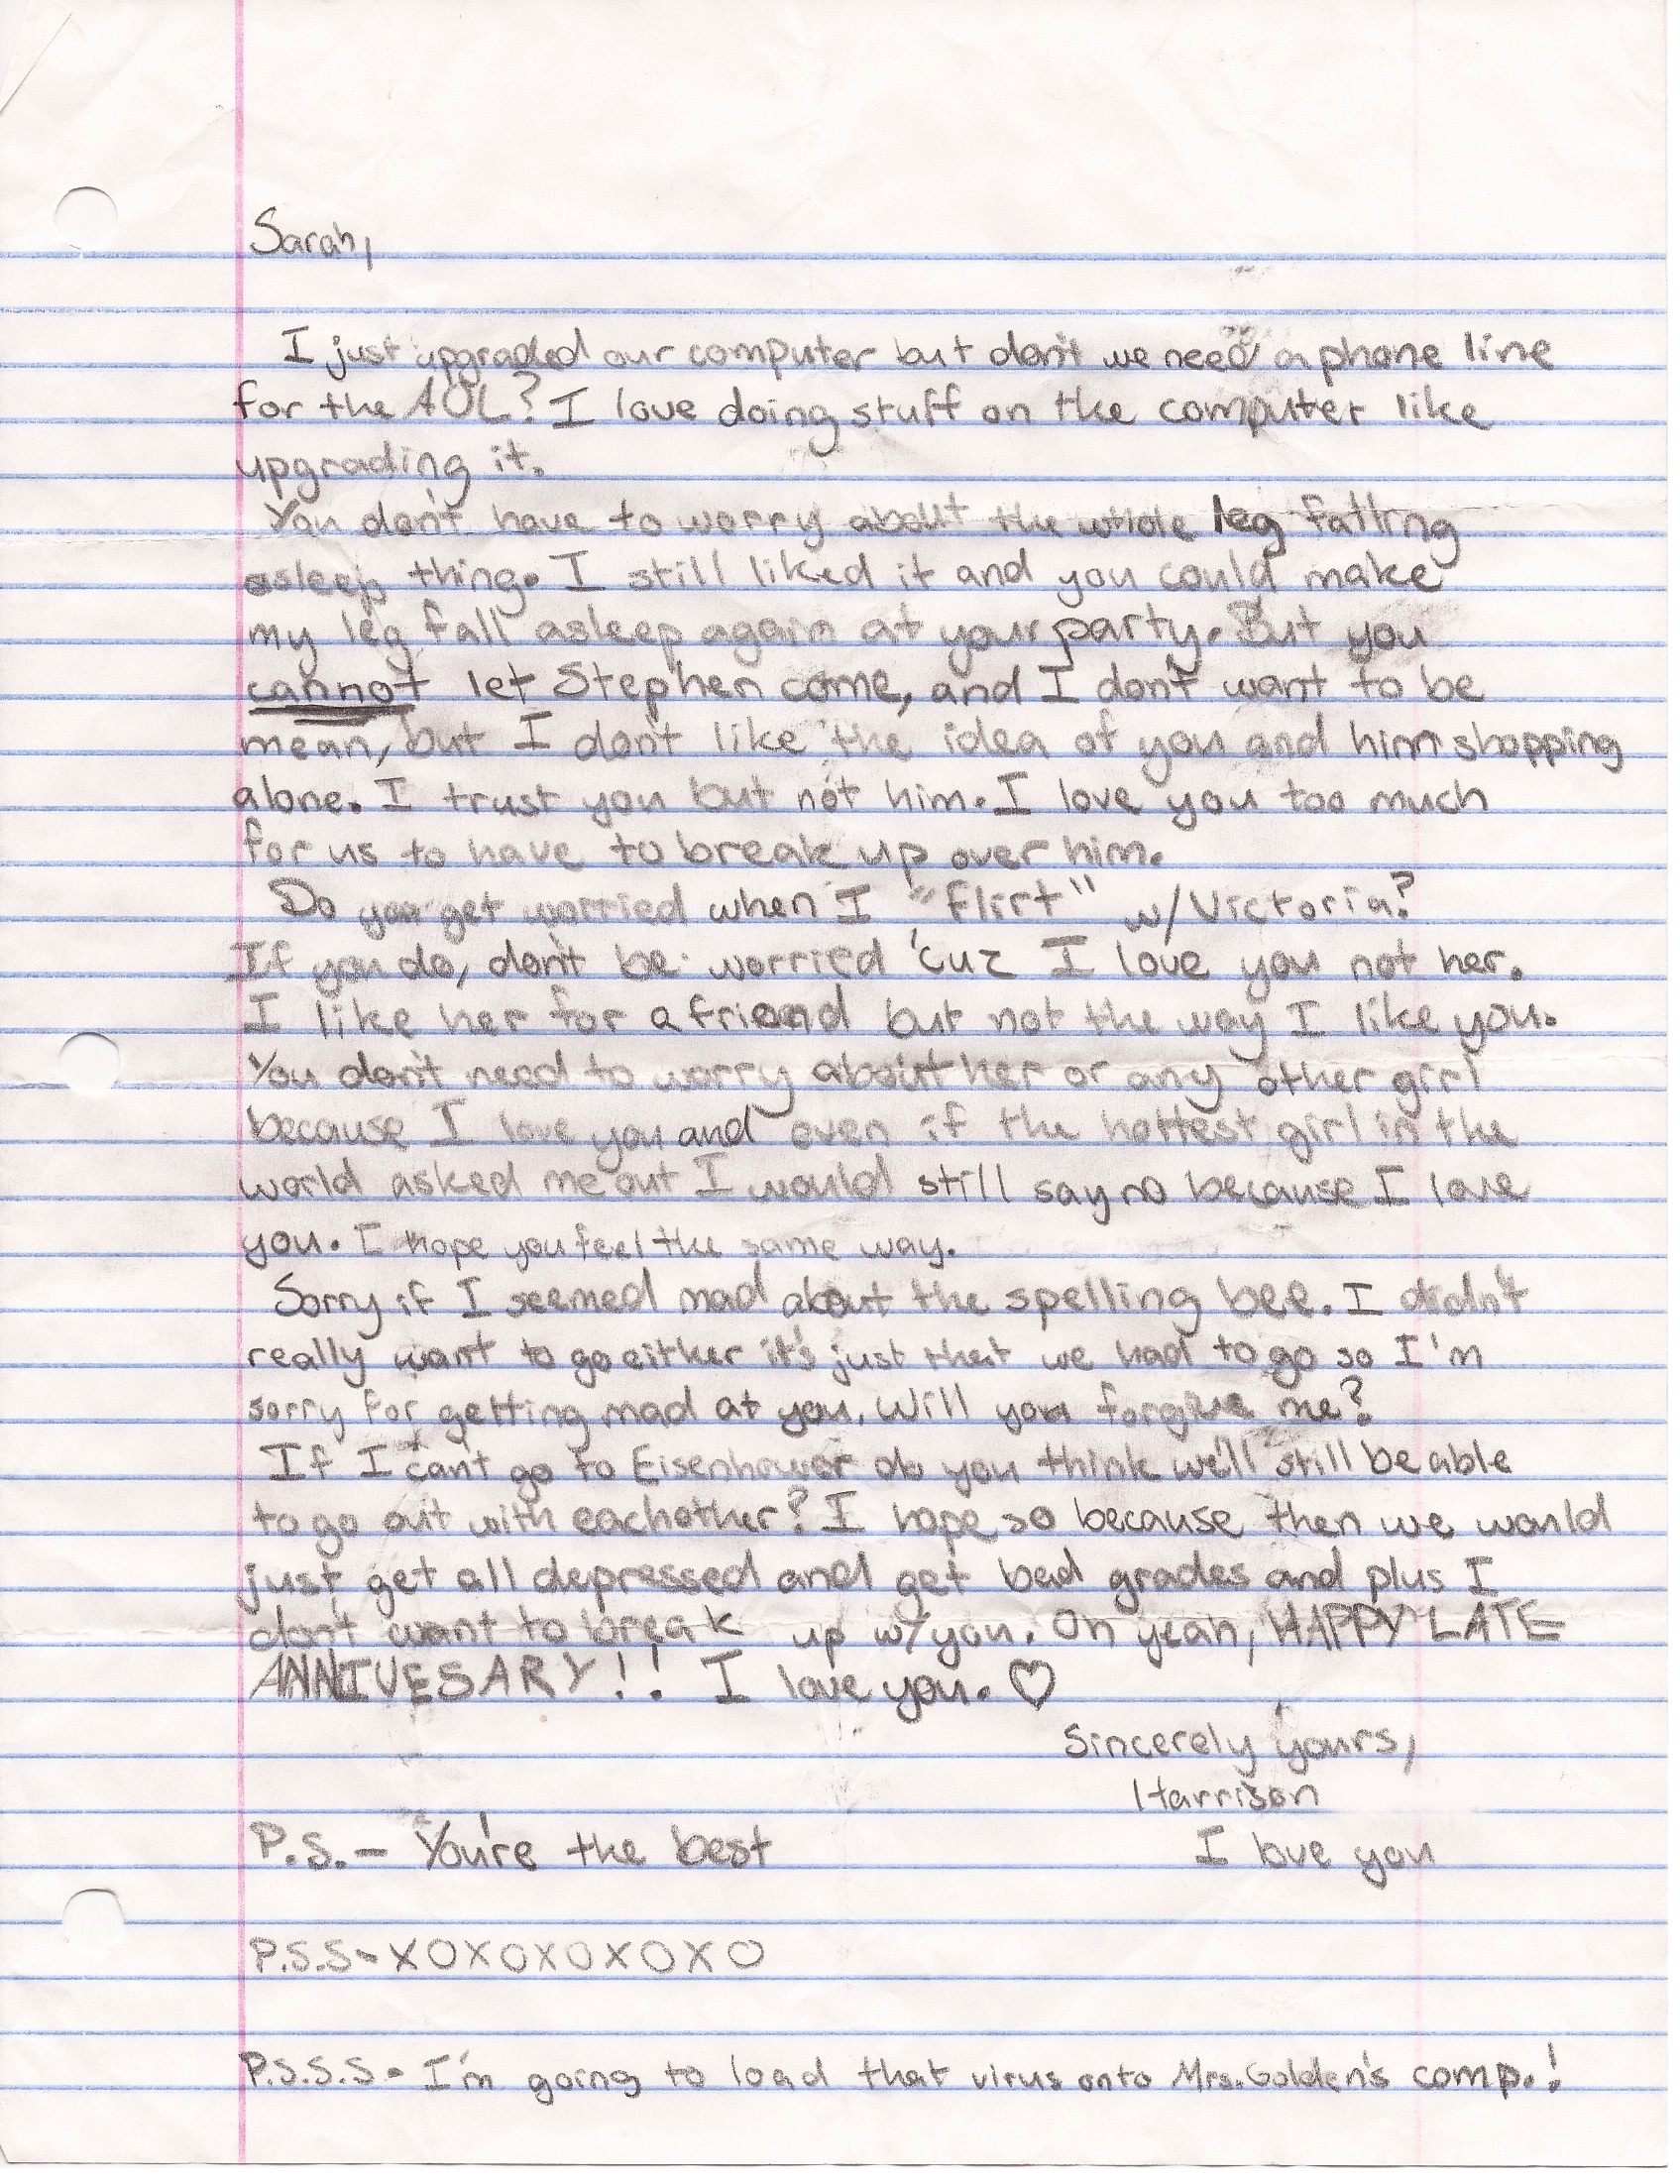 Sarah,
I just upgraded our computer but don't we need a phone line
for the AOL? I love doing stuff on the computer like
upgrading it.
You don't have to worry about the whole leg falling
asleep thing. I still liked it and you could make
my leg fall asleep again at your party. But you
cannot let Stephen come, and I don't want to be
mean, but I don't like the idea of you and him shopping
alone. I trust you but not him. I love you too much
for us to have to break up over him.
Do you get worried when I "flirt" w/Victoria?
If you do, don't be worried 'cuz I love you not her.
I like her for a friend but not the way I like you.
You don't need to worry about her or any other girl
because I love you and even if the hottest girl in the
world asked me out I would still say no because I love
you. I hope you feel the same way.
Sorry if I seemed mad about the spelling bee. I didn't
really want to go either it's just that we had to go so I'm
sorry for getting mad at you. Will you forgive me?
If I can't go to Eisenhower do you think we'll still be able
to go out with eachother? I hope so because then we would
just get all depressed and get bad grades and plus I
don't want to break up w/ you. Oh yeah, HAPPY LATE
ANNIVESARY!! I love you. ♡
Sincerely yours,
Harrison
P.S.- You're the best I love you
P.S.S- XOXOXOXOXO
P.S.S.S- I'm going to load that virus onto Mrs. Golden's comp.!